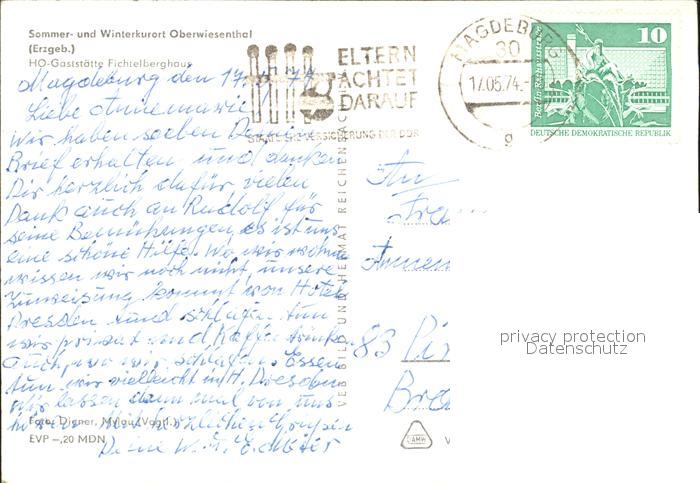 Sommer- und Winterkurort Oberwiesenthal
(Erzgeb.)
HO-Gaststätte Fichtelberghaus
ELTERN
ACHTET
DARAUF
STAATLICHE VERSICHERUNG DER DDR
MAGDEBURG
30
17.05.74.
g
10
Berlin Rathausstraße
DEUTSCHE DEMOKRATISCHE REPUBLIK
Magdeburg den 17.5.74
Liebe Annemarie!
Wir haben soeben Deinen
Brief erhalten und danken
Dir herzlich dafür, vielen
Dank auch an Rudolf für
seine Bemühungen, es ist uns
eine schöne Hilfe. Wo wir wohnen
wissen wir noch nicht, unsere
Zuweisung kommt vom Hotel
Dresden und schlafen tun
wir privat und Kaffee trinken
auch, wo wir schlafen. Essen
tun wir vielleicht im H. Dresden
Wir lassen dann mal von uns
hören. Mit herzlichen Grüßen
Deine W. u.
An
Frau
83 Pir
VEB BILD UND HEIMAT REICHENBACH
Foto: Digner, Mylau (Vogtl.)
EVP –,20 MDN
DAMW
V
privacy protection
Datenschutz